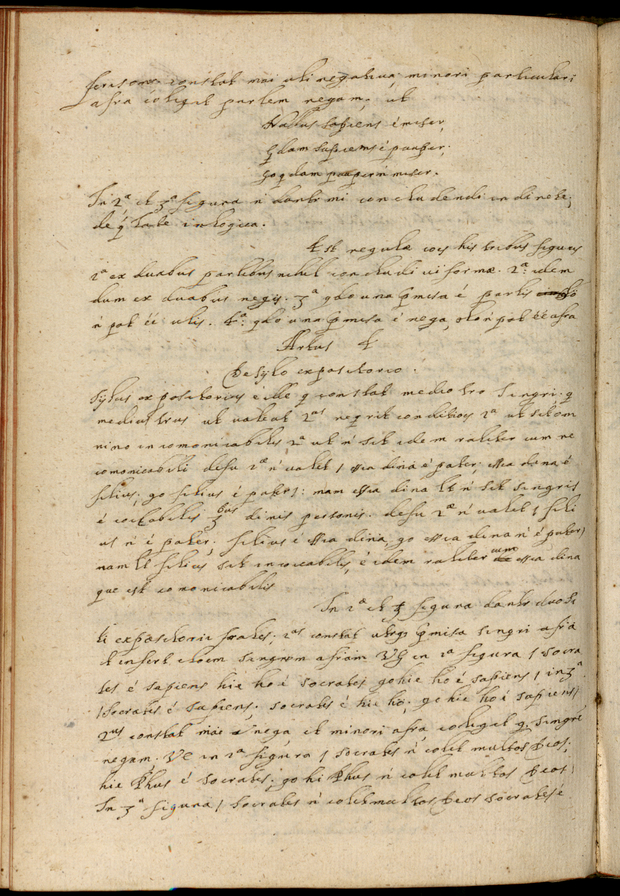 ferisomo constat mai uli negativa, minori particulari
afra coligit partem negam. ut
Nullus sapiens é miser,
qdam sapiens é pauper,
go qdam pauper n̄ miser.
In 2ª et 3ª figura n̄ dantr mi concludendi indirecte,
de q̄ late in logica.
4 st regulæ coēs his tribus figuris
1ª ex duabus partibus nihil concludi vi formæ. 2ª: idem
dum ex duabus negis. 3ª qdo una p̄misa é partis
n̄ pot éé ulis. 4ª: qdo una p̄misa é nega, clo n̄ pot éé afra
Artus 4
De sylo expositorio.
Sylus expositorius é ille q̄ constat medio tro singri. q̄
medius trus ut valeat 2ᵘˢ requirit conditiois 1ª ut sit om
nino incomonicabilis 2ª ut n̄ sit idem realiter cum re
comonicabili defu 1æ n̄ valet / essia dina é pater: essia dina é
filius, go filius é pater /: nam essia dina lt n̄ sit singris
é coicabilis 3bus dinis personis. defu 2æ n̄ valet / fili
us n̄ é pater. filius é essia dina, go essia dina n̄ é pater /
nam lt filius sit incoicabilis, é idem realiter cum essia dina
que est comonicabilis
In 2ª et 3 figura dantr duo si
li expositorii frales; 1ᵘˢ constat utraq̄ p̄misa singri afra
et infert cloem singrem afram Vg in 2ª figura / Socra
tes é sapiens hic ho é Socrates go hic ho é sapiens / in 3ª
/ Socrates é sapiens; Socrates é hic ho; go hic ho é sapiens /
2ᵘˢ constat mãe nega et minori afra coligit q̄ singre
negam. Vg in 2ª figura / Socrates n̄ colit multos Deos;
hic Phus é Socrates. go hi Phus n̄ colit multos Deos /
In 3ª figura / Socrates n̄ colit multos Deos Socrates é